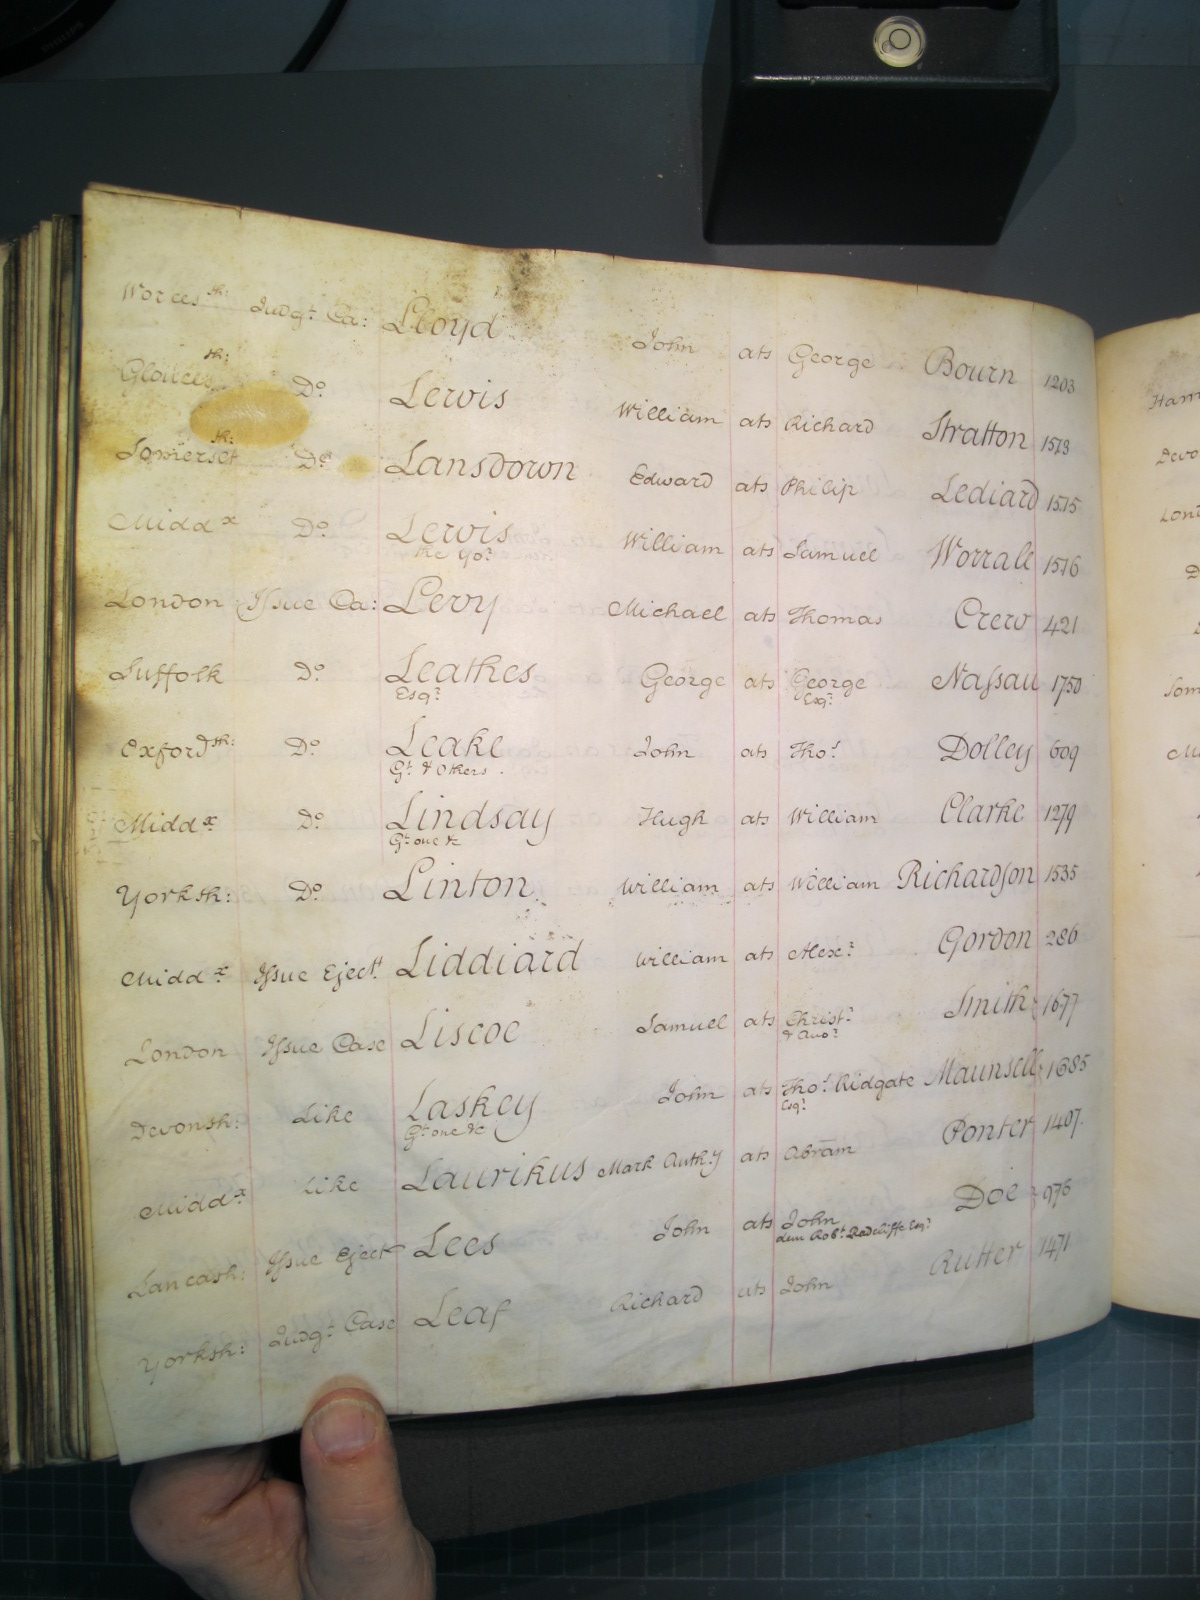 Worces sh: Judgt. Ca: Lloyd John ats George Bourn 1203
Glouces sh: Do. Lewis William ats Richard Stratton 1573
Somerset sh: Do. Lansdown Edward ats Philip Lediard 1575
Middx Do. Lewis William ats Samuel Worrall 1576
the Yor.
London Issue Ca: Levy Michael ats Thomas Crew 421
Suffolk Do. Leathes George ats George Nassau 1750
Esqr. Esqr.
Oxford sh: Do. Leake John ats Thos. Dolley 609
Gt. & Others.
Middx Do. Lindsay Hugh ats William Clarke 1279
Gt. one &c
Yorksh: Do. Linton William ats William Richardson 1535
Middx Issue Eject. Liddiard William ats Alexr. Gordon 286
London Issue Case Liscoe Samuel ats Christr. Smith 1677
& Anor.
Devonsh: Like Laskey John ats Thos. Ridgate Maunsell 1685
Gt. one &c Esqr.
Middx Like Laurikus Mark Anthy. ats Abram Ponter 1407.
Lancash: Issue Eject Lees John ats John Doe 976
dem Robt. Radcliffe Esqr.
Yorksh: Judgt. Case Leaf Richard ats John Rutter 1471
Ham
Devo
Lon
Som